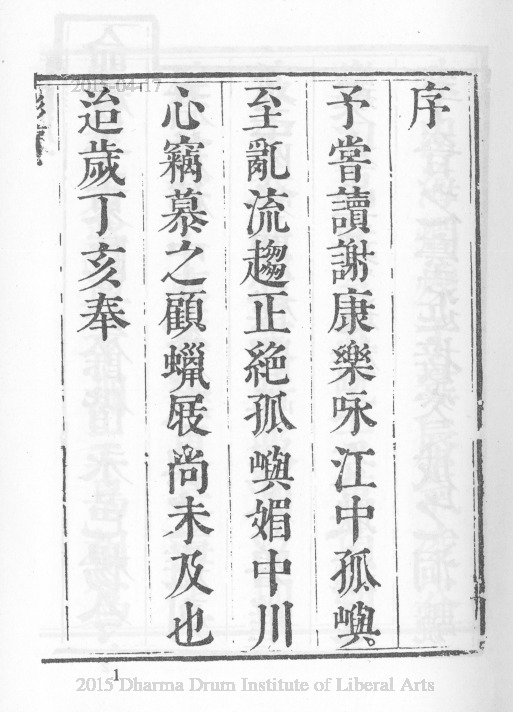 序
予嘗讀謝康樂咏江中孤嶼
至亂流趨正絕孤嶼媚中川
心竊慕之顧蠟屐尚未及也
迨歲丁亥奉
2015-04-17
1
2015 Dharma Drum Institute of Liberal Arts